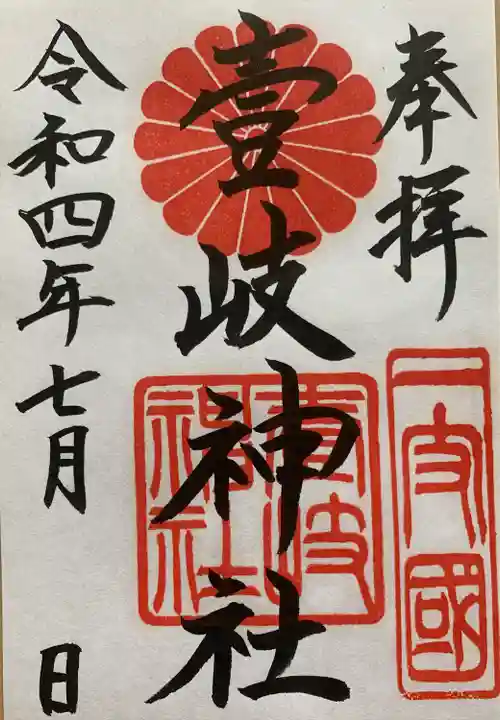 奉拝
一支國
壹岐神社
壹岐神社
令和四年七月 日